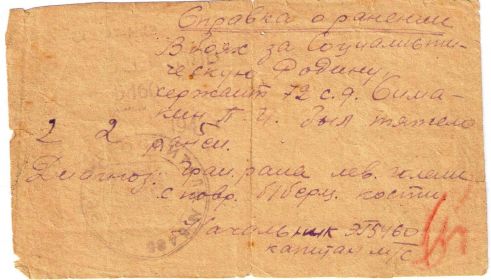 Справка о ранении
В боях за Социалисти-
ческую Родину
сержант 72 с.д. Сима-
кин П. И. был тяжело
2 2 ранен.
Диагноз: гран. рана лев. голени
с повр. б/берц. кости
Начальник ЭП5460
капитан м/с